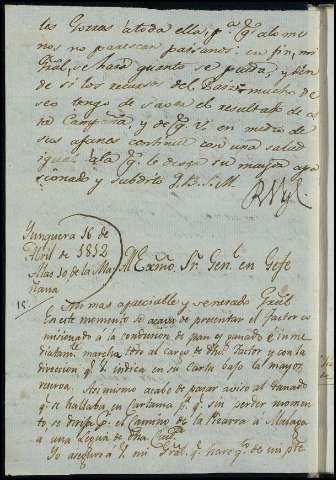 las Gorras á toda ella, pª qͤ alome
nos no parescan paisanos: en fin, mi
Gral, se hará quanto se pueda, y den
de si los recursos del Pais: mucho de
seo tengo de saver el resultado de es
ta Campaña, y de qͤ V. en medio de
sus afanes continue con una salud
igual á la qͤ le desea su mayor apa
cionado y subdito Q.B.S.M.
Yunquera 16 de
Abril de 1812
á las 10 de la Ma
ñana
Exmo. Sr. Genl. en Gefe
15
Mi mas apreciable y venerado Gral
En este momento se acava de presentar el factor co
misionado á la conducion de pan y ganado é inme
diatamte. marcha todo al cargo de dho. Factor y con la
direccion qͤ V. indica en su carta bajo la mayor
reserva. Asi mismo acabo de pasar aviso al Ganado
qͤ se hallaba en Cartama pª qͤ sin perder momento
se dirija pr. el Camino de la Pizarra á Malaga
a una Legua de dha Ciud.
Yo aseguro á V. mi Gral. qͤ hare qto. de mi pte